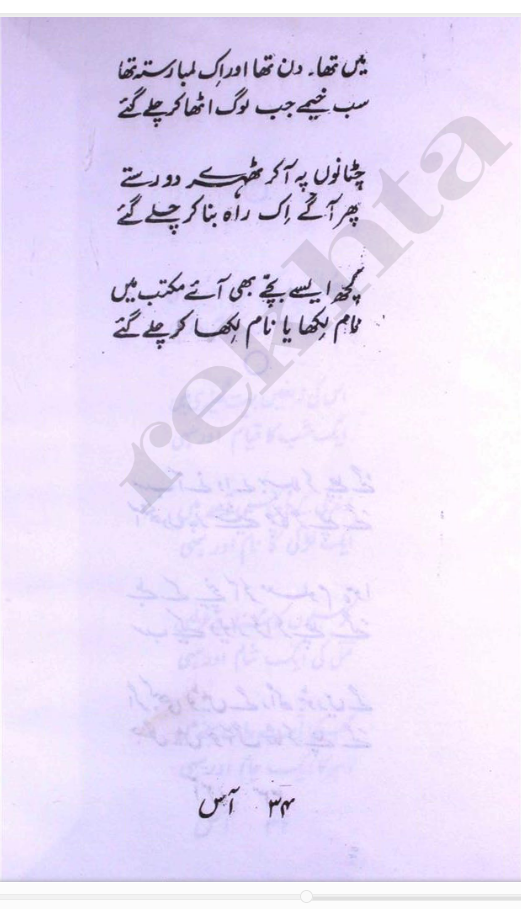 میں تھا۔ دن تھا اور اِک لمبا رستہ تھا
سب خیمے جب لوگ اٹھا کر چلے گئے
چٹانوں پہ آ کر ٹھہرے دو رستے
پھر آگے اِک راہ بنا کر چلے گئے
کچھ ایسے بچّے بھی آئے مکتب میں
نام لِکھا یا نام لِکھا کر چلے گئے
rekhta
۳۴ آس